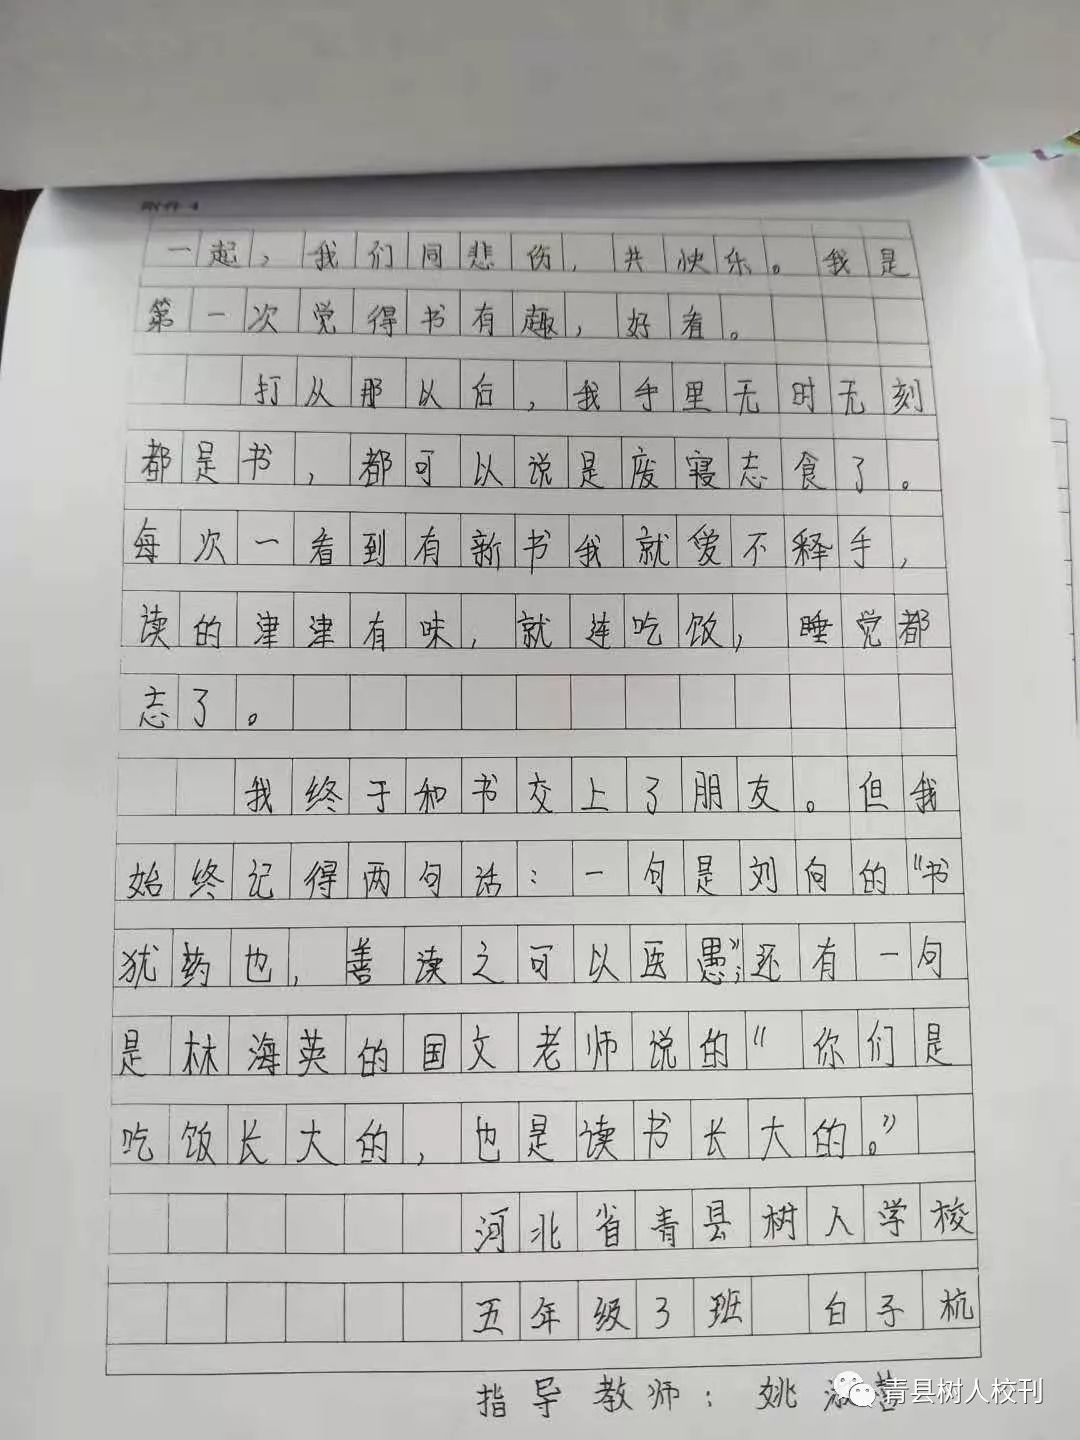 附件4
一起，我们同悲伤，共快乐。我是
第一次觉得书有趣，好看。
打从那以后，我手里无时无刻
都是书，都可以说是废寝忘食了。
每次一看到有新书我就爱不释手，
读的津津有味，就连吃饭，睡觉都
忘了。
我终于和书交上了朋友。但我
始终记得两句话：一句是刘向的“书
犹药也，善读之可以医愚”；还有一句
是林海英的国文老师说的“你们是
吃饭长大的，也是读书长大的。”
河北省青县树人学校
五年级3班 白子杭
指导教师：姚淑
青县树人校刊